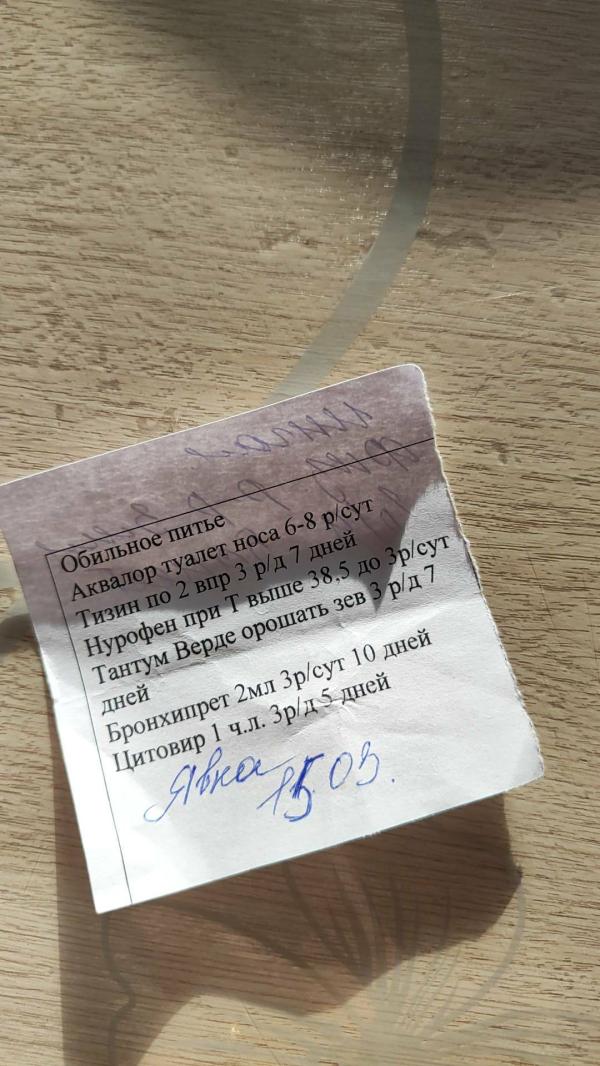 Обильное питье
Аквалор туалет носа 6-8 р/сут
Тизин по 2 впр 3 р/д 7 дней
Нурофен при Т выше 38,5 до 3р/сут
Тантум Верде орошать зев 3 р/д 7
дней
Бронхипрет 2мл 3р/сут 10 дней
Цитовир 1 ч.л. 3р/д 5 дней
Явка 15.03.